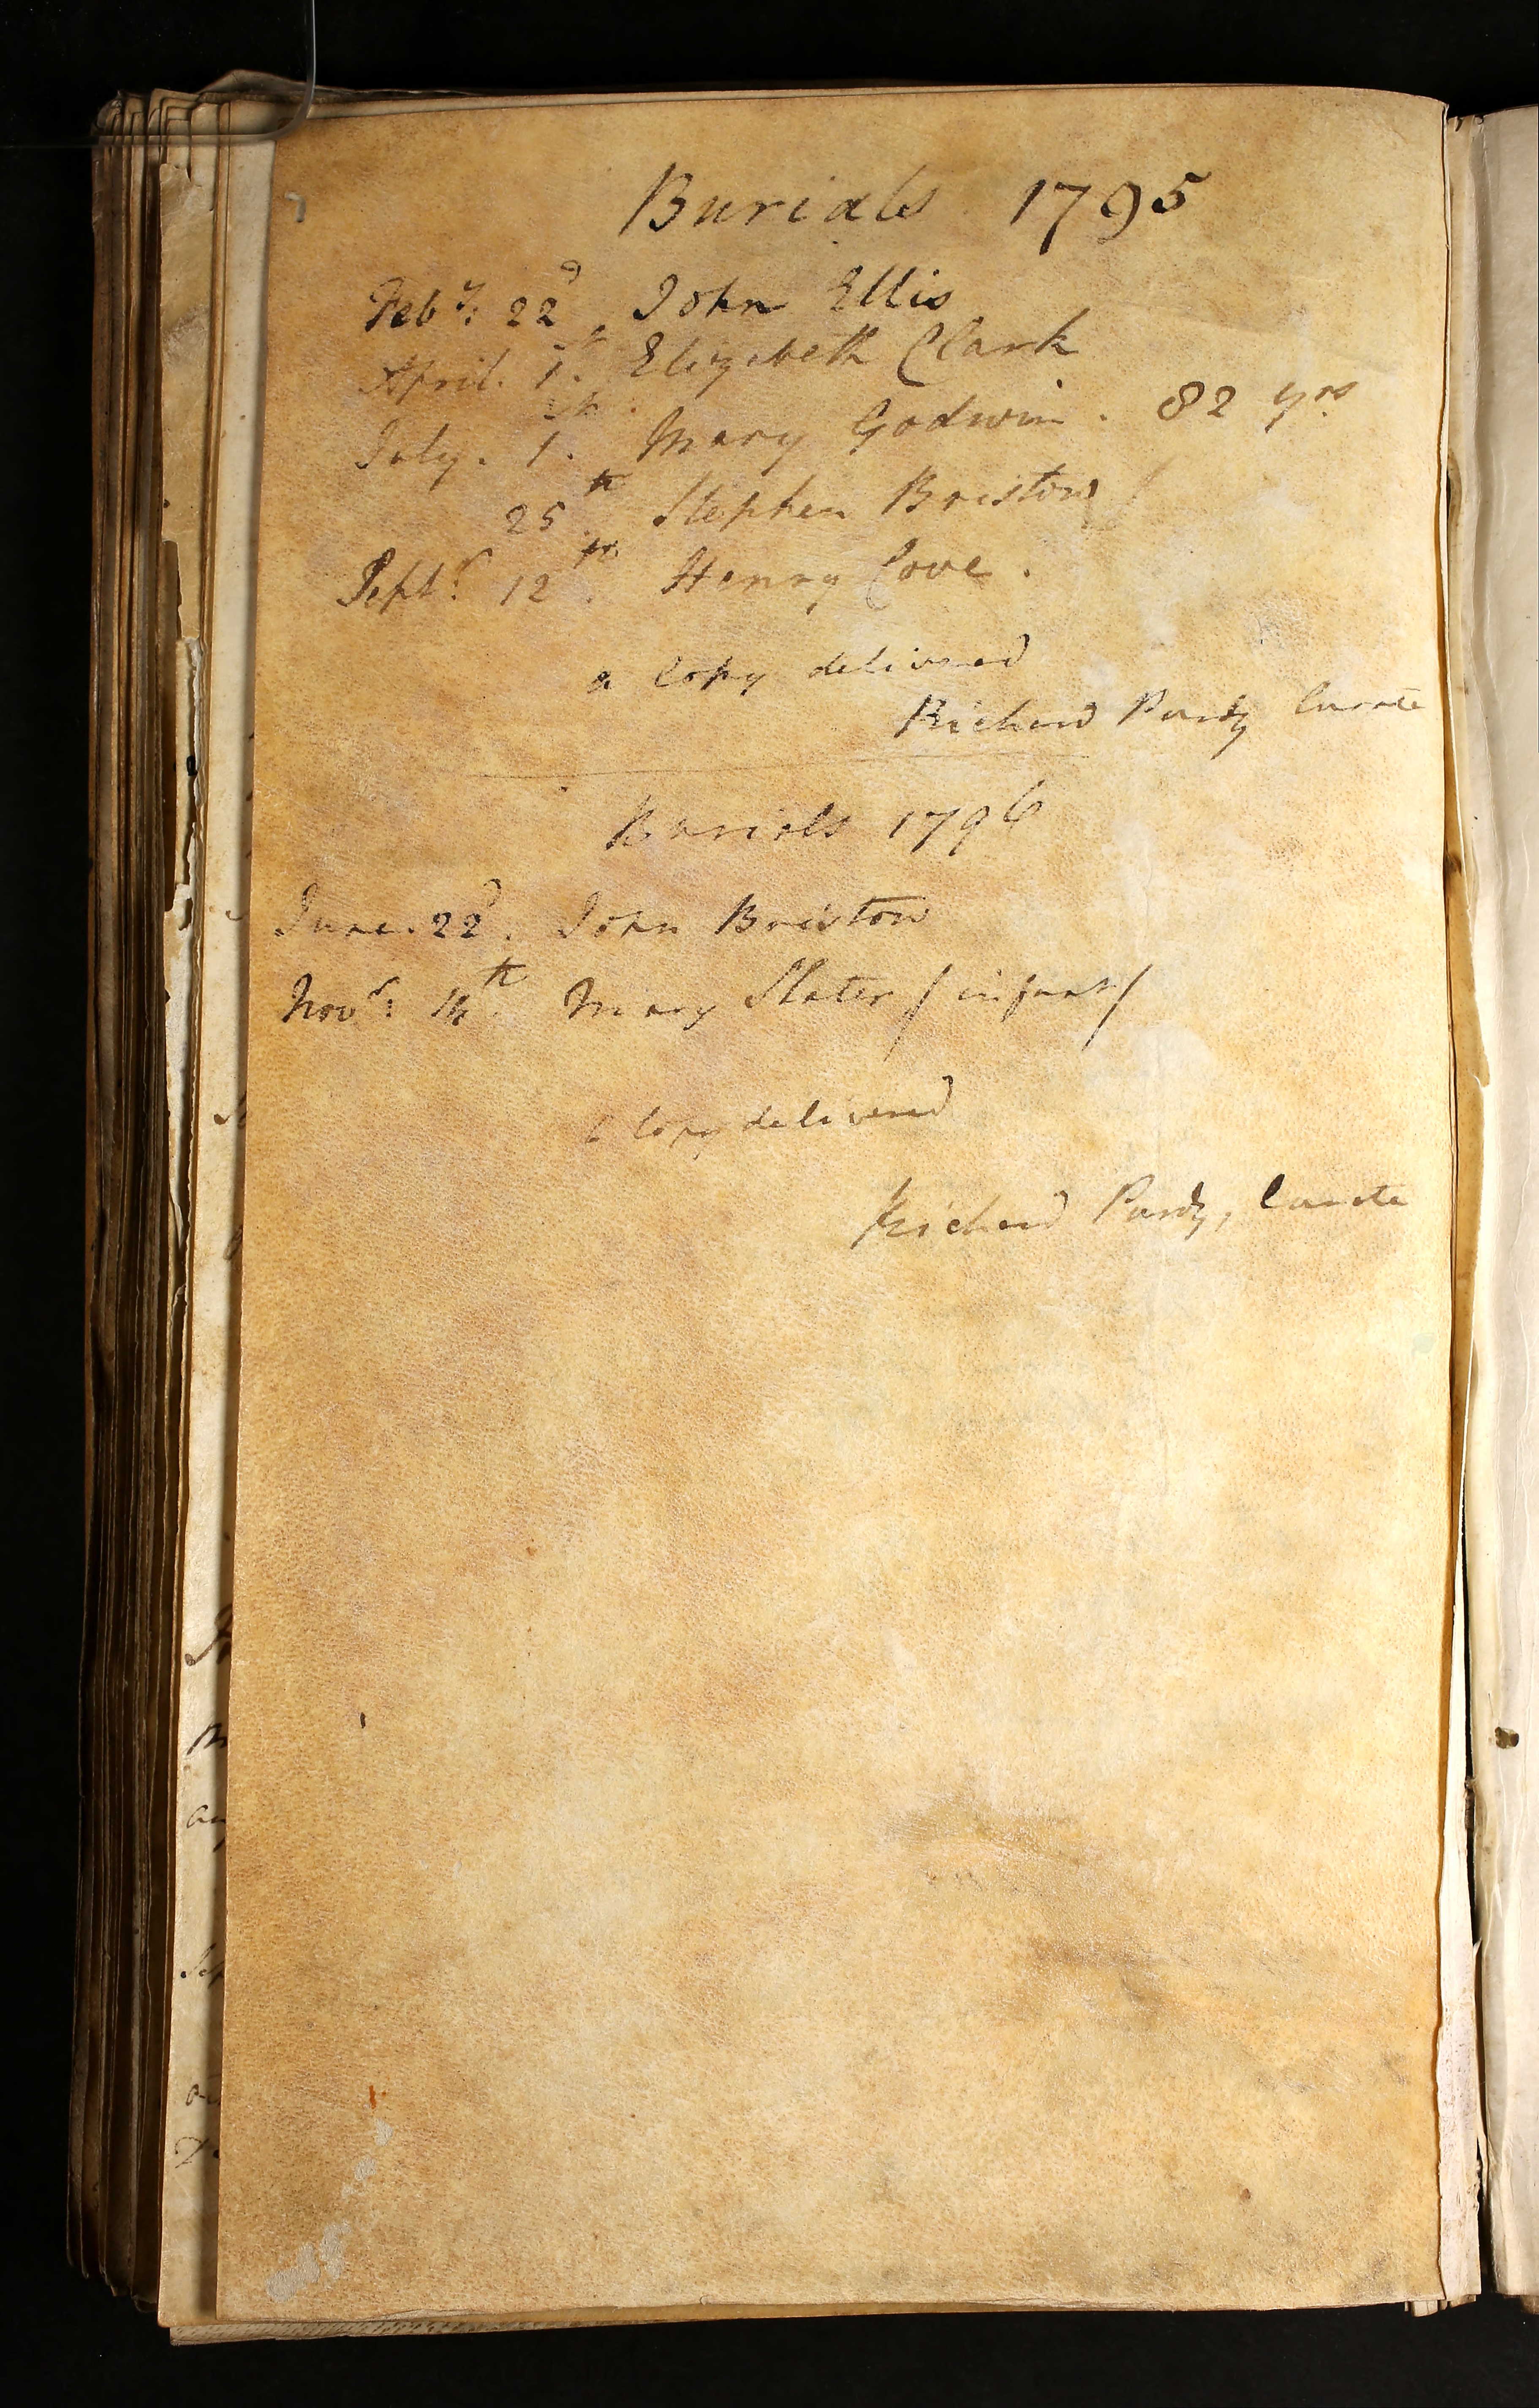 Burials 1795
Feb.y: 22d John Ellis
April. 1st. Elizabeth Clark
July. 1st. Mary Godwin. 82 yrs
25th. Stephen Bristow
Septr. 12th. Henry Cove.
a Copy delivered
Richard Purdy Curate
Burials 1796
June. 22d. John Bristow
Novr: 14th. Mary Slater / infant /
a Copy delivered
Richard Purdy, Curate